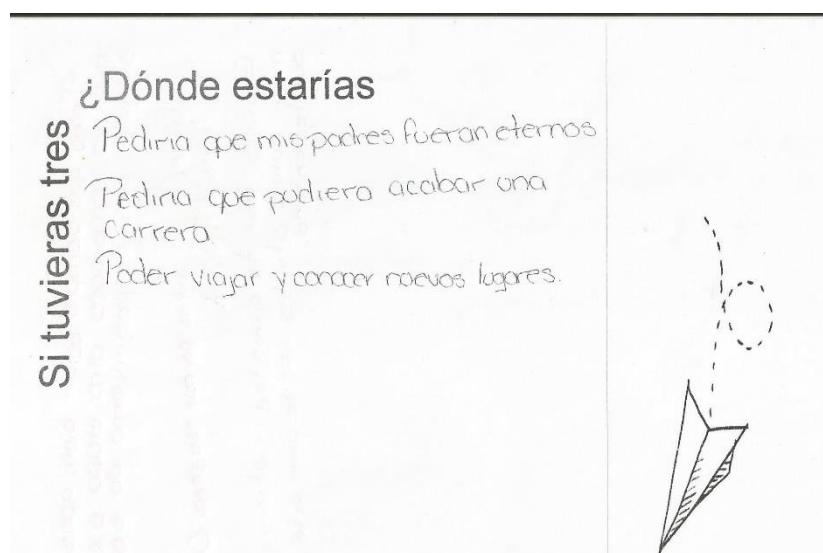 ¿Dónde estarías
Si tuvieras tres
Pediria que mis padres fueran eternos
Pediria que pudiera acabar una
carrera
Poder viajar y conocer nuevos lugares.